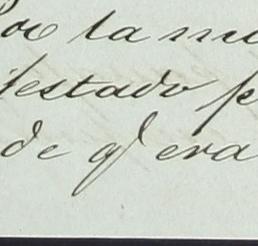 Por la mu
festado p
de q' era